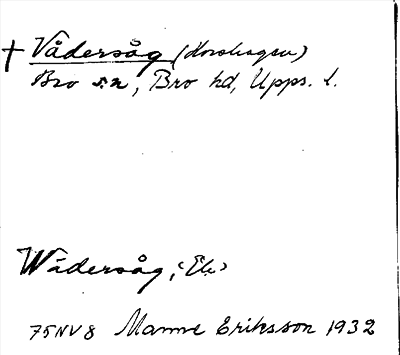 † Vådersåg (Horshagen)
Bro sn, Bro hd, Upps. l.
Wådersåg, (Ek)
75NV8 Manne Eriksson 1932